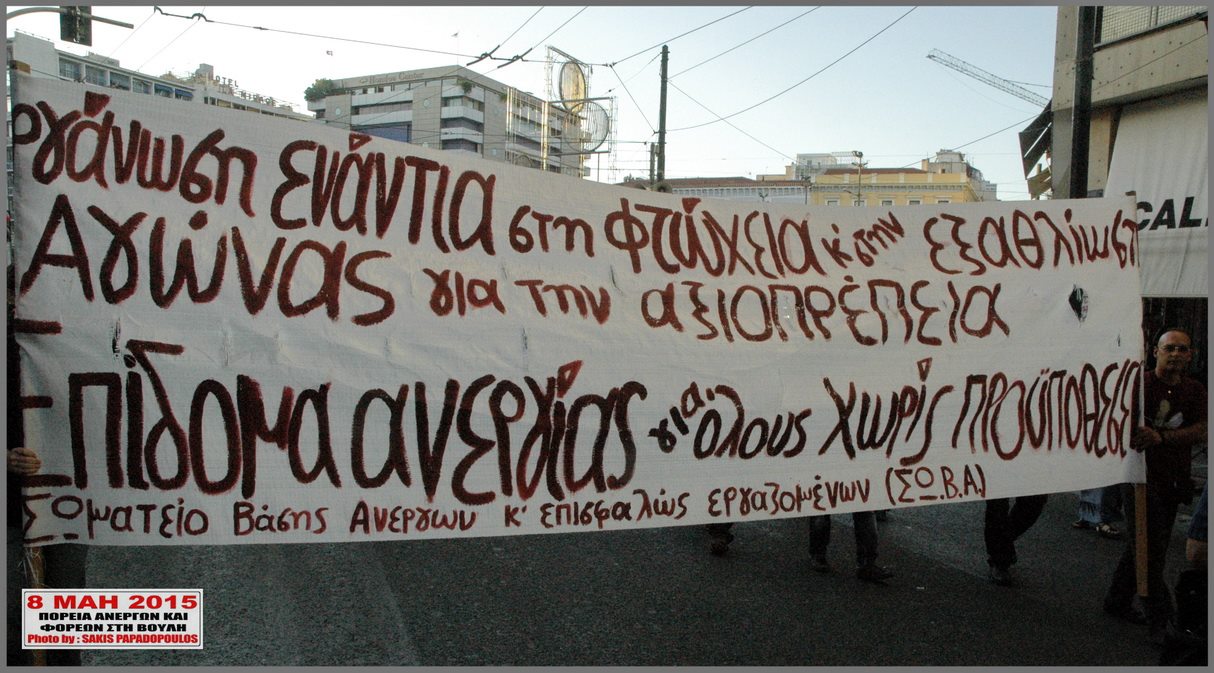 ργάνωση ενάντια στη φτώχεια κ' στην εξαθλίωση
Αγώνας για την αξιοπρέπεια
Επίδομα ανεργίας για όλους χωρίς προϋποθέσε
Σωματείο Βάσης Ανέργων κ' επισφαλώς εργαζομένων (ΣΩ.Β.Α.)
CAL
8 ΜΑΗ 2015
ΠΟΡΕΙΑ ΑΝΕΡΓΩΝ ΚΑΙ
ΦΟΡΕΩΝ ΣΤΗ ΒΟΥΛΗ
Photo by : SAKIS PAPADOPOULOS